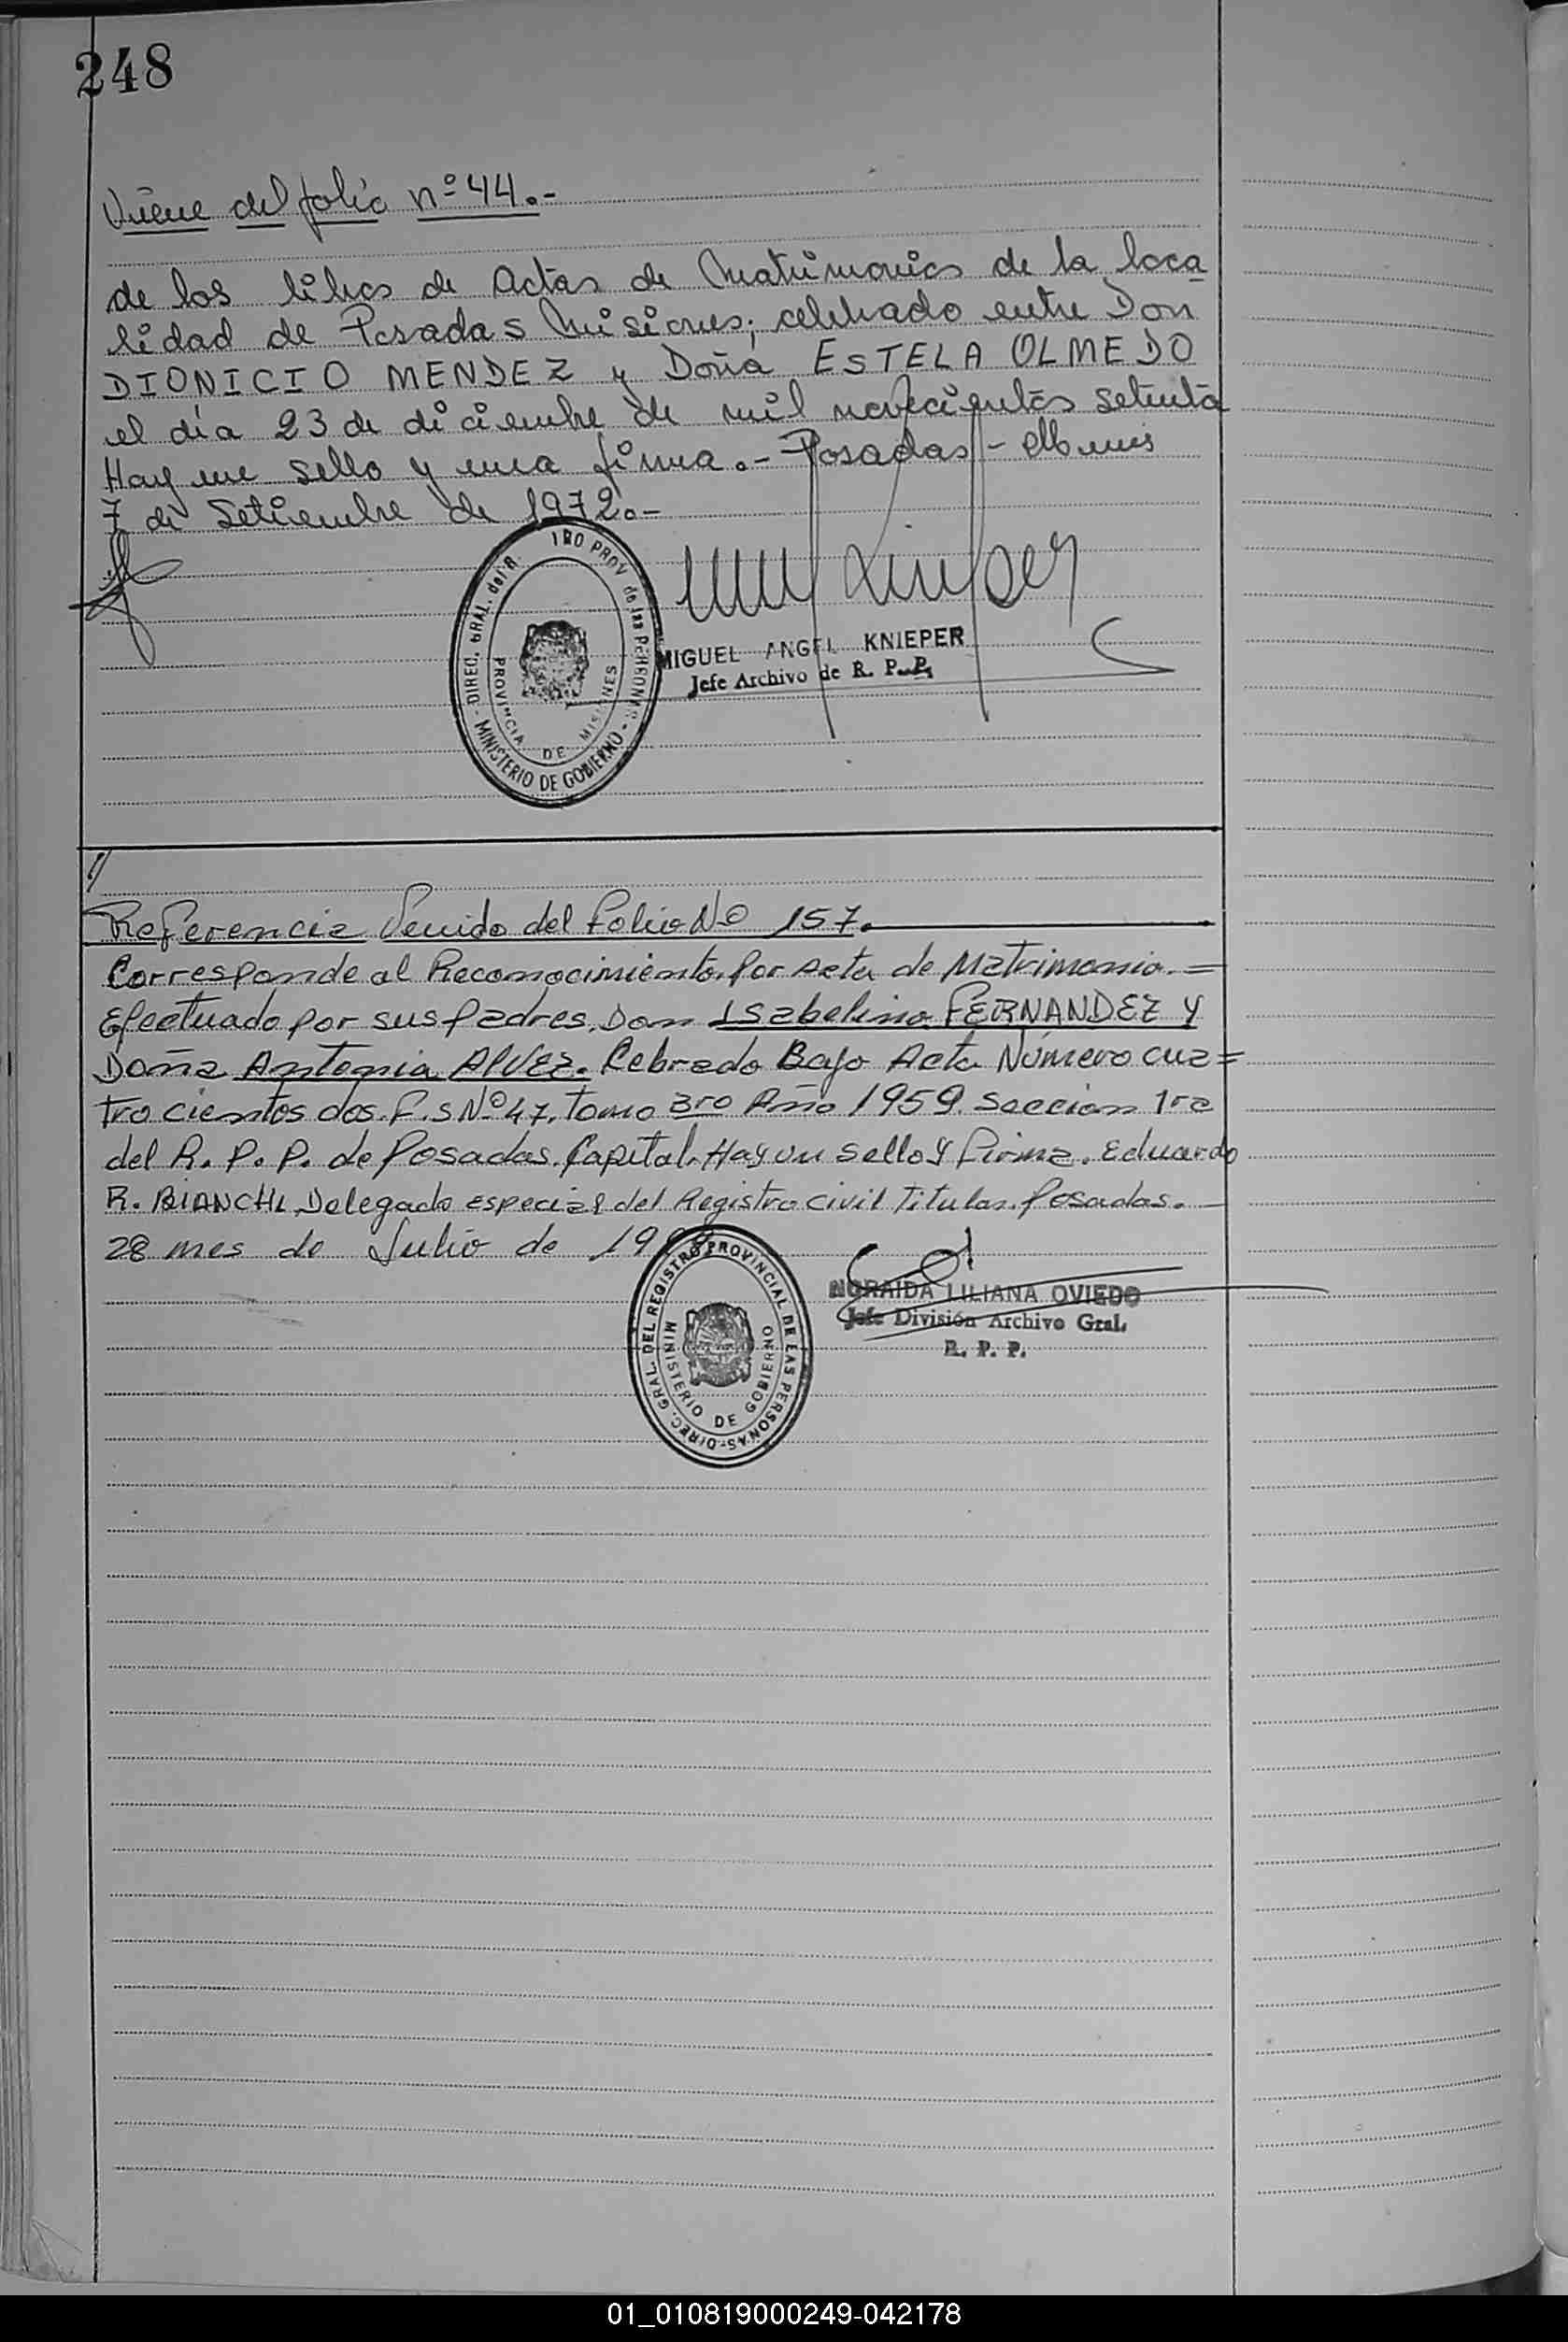 248
Viene del folio nº 44.-
de los libros de Actas de Matrimonios de la loca
lidad de Posadas Misiones; celebrado entre Don
DIONICIO MENDEZ y Doña ESTELA OLMEDO
el día 23 de diciembre de mil novecientos setenta
Hay un sello y una firma.- Posadas - Mnes
7 de Setiembre de 1972.-
DIREC. GRAL. del R. PROV de las PERSONAS - MINISTERIO DE GOBIERNO
PROVINCIA DE MISIONES
MIGUEL ANGEL KNIEPER
Jefe Archivo de R. P. P.
Referencia Venido del Folio Nº 157.
Corresponde al Reconocimiento. Por Acta de Matrimonio. =
Efectuado por sus padres. Don Isabelino FERNANDEZ Y
Doña Antonia Alvez. Cebrado Bajo Acta Número cua=
tro cientos dos. F.s Nº 47. Tomo 3ro Año 1959. Seccion 1ra
del R. P. P. de Posadas. Capital. Hay un sello y Firma. Eduardo
R. BIANCHI. Delegado especial del Registro Civil Titular. Posadas.
28 mes de Julio de
DIREC. GRAL. DEL REGISTRO PROVINCIAL DE LAS PERSONAS
MINISTERIO DE GOBIERNO
NORAIDA LILIANA OVIEDO
Jefe División Archivo Gral.
R. P. P.
01_010819000249-042178